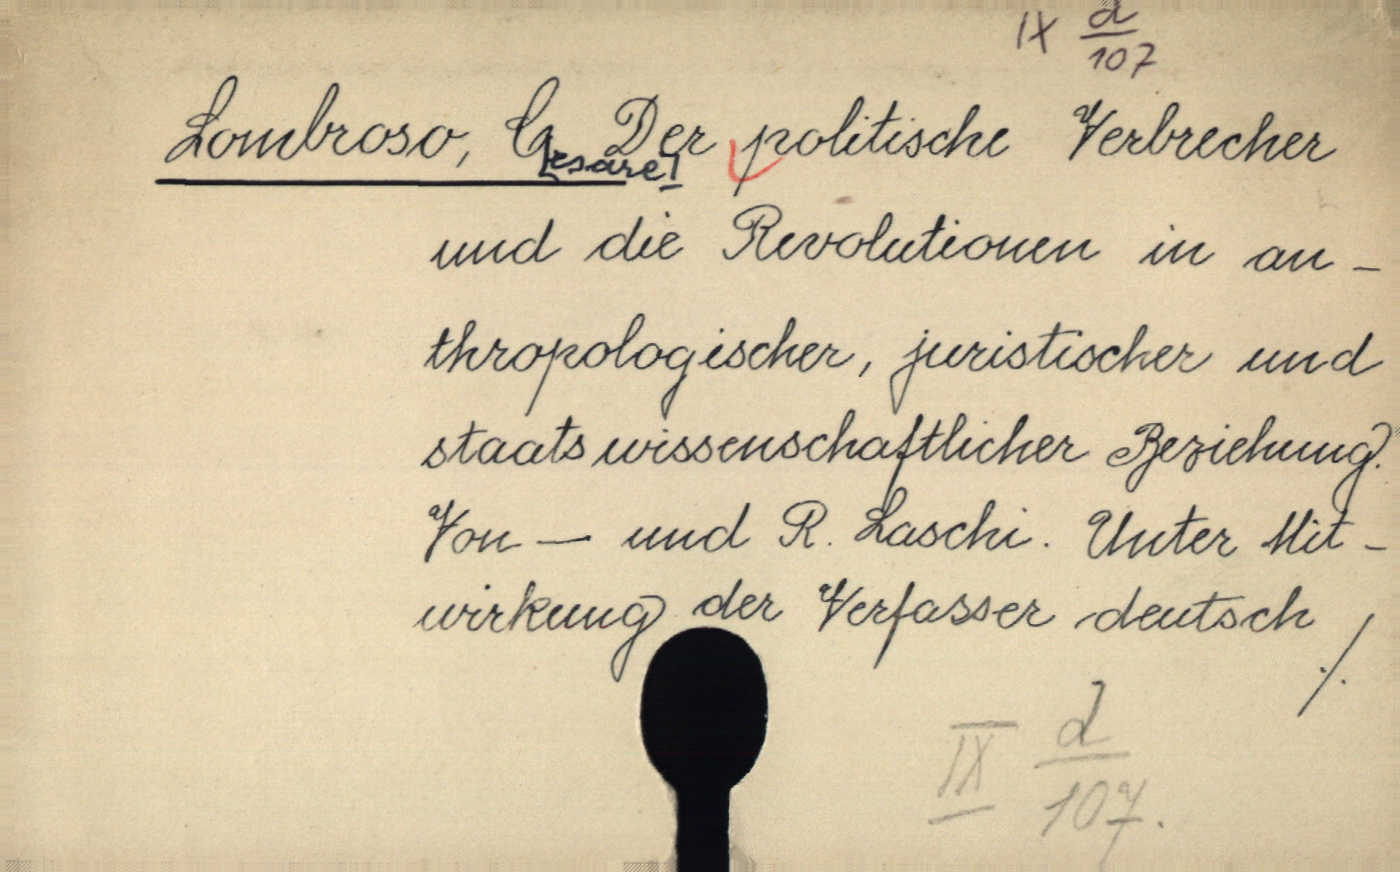 IX d/107
Lombroso, C[esare] Der politische Verbrecher
und die Revolutionen in an-
thropologischer, juristischer und
staatswissenschaftlicher Beziehung.
Von — und R. Laschi. Unter Mit-
wirkung der Verfasser deutsch
./.
IX d/107.